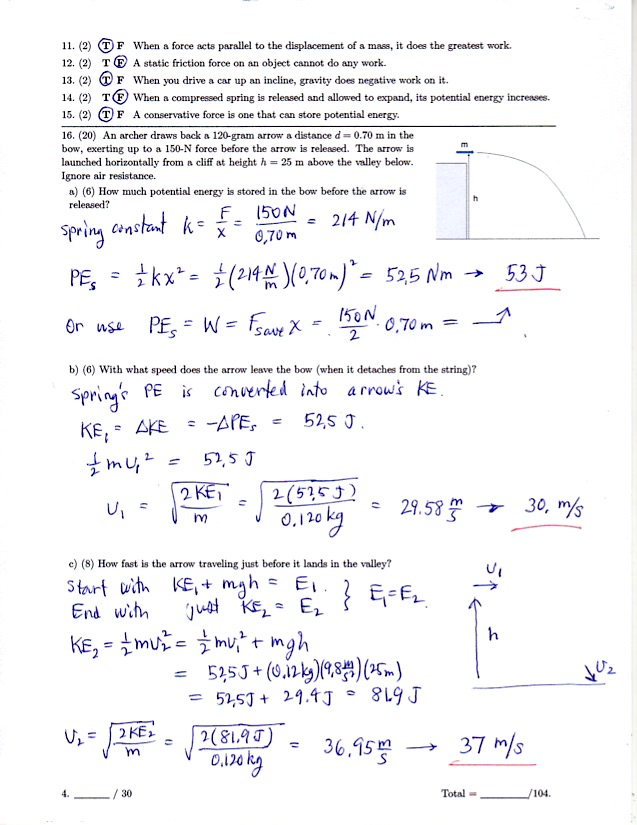 11. (2) T F When a force acts parallel to the displacement of a mass, it does the greatest work.
12. (2) T F A static friction force on an object cannot do any work.
13. (2) T F When you drive a car up an incline, gravity does negative work on it.
14. (2) T F When a compressed spring is released and allowed to expand, its potential energy increases.
15. (2) T F A conservative force is one that can store potential energy.
16. (20) An archer draws back a 120-gram arrow a distance d = 0.70 m in the
bow, exerting up to a 150-N force before the arrow is released. The arrow is
launched horizontally from a cliff at height h = 25 m above the valley below.
Ignore air resistance.
m
h
a) (6) How much potential energy is stored in the bow before the arrow is
released?
Spring constant k = F/x = 150N/0,70m = 214 N/m
PEs = ½kx² = ½(214 N/m)(0,70m)² = 52,5 Nm → 53 J
Or use PEs = W = Fsave x = 150N/2 · 0,70m = →
b) (6) With what speed does the arrow leave the bow (when it detaches from the string)?
Spring's PE is converted into arrow's KE.
KE₁ = ΔKE = -ΔPEs = 52,5 J.
½mv₁² = 52,5 J
v₁ = √(2KE₁/m) = √(2(52,5 J)/0,120kg) = 29.58 m/s → 30, m/s
c) (8) How fast is the arrow traveling just before it lands in the valley?
Start with KE₁ + mgh = E₁.
End with just KE₂ = E₂ } E₁=E₂.
KE₂ = ½mv₂² = ½mv₁² + mgh
= 52,5J + (0,12kg)(9,8 m/s²)(25m)
= 52,5J + 29.4J = 81.9 J
v₂ = √(2KE₂/m) = √(2(81,9J)/0,120kg) = 36,95 m/s → 37 m/s
v₁
h
v₂
4. ______ / 30
Total = ________/104.